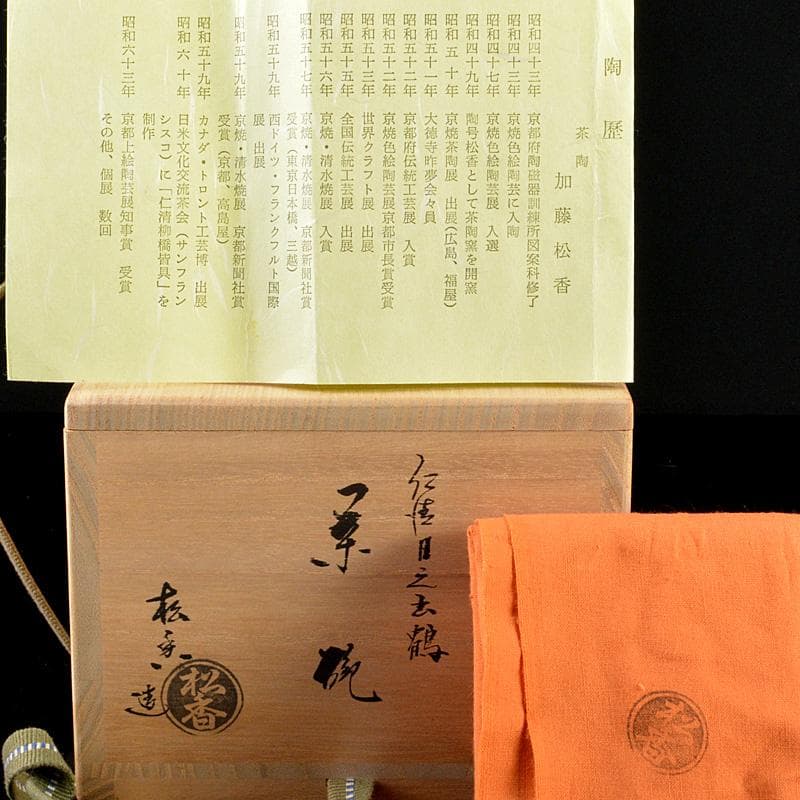 陶歴
茶陶
加藤松香
昭和四十三年 京都府陶磁器訓練所図案科修了
昭和四十三年 京焼色絵陶芸に入陶
昭和四十七年 京焼色絵陶芸展 入選
昭和四十九年 陶号松香として茶陶窯を開窯
昭和五十年 京焼茶陶展 出展(広島、福屋)
昭和五十一年 大徳寺昨夢会々員
昭和五十二年 京都府伝統工芸展 入賞
昭和五十二年 京焼色絵陶芸展京都市長賞受賞
昭和五十三年 世界クラフト展 出展
昭和五十五年 全国伝統工芸展 出展
昭和五十六年 京焼・清水焼展 入賞
昭和五十七年 京焼・清水焼展 京都新聞社賞
受賞(東京日本橋、三越)
昭和五十九年 西ドイツ・フランクフルト国際
展 出展
昭和五十九年 京焼・清水焼展 京都新聞社賞
受賞(京都、高島屋)
昭和五十九年 カナダ・トロント工芸博 出展
昭和六十年 日米文化交流茶会(サンフラン
シスコ)に「仁清柳橋皆具」を
制作
昭和六十三年 京都上絵陶芸展知事賞 受賞
その他、個展 数回
仁清日之出鶴
茶碗
松香造
松香